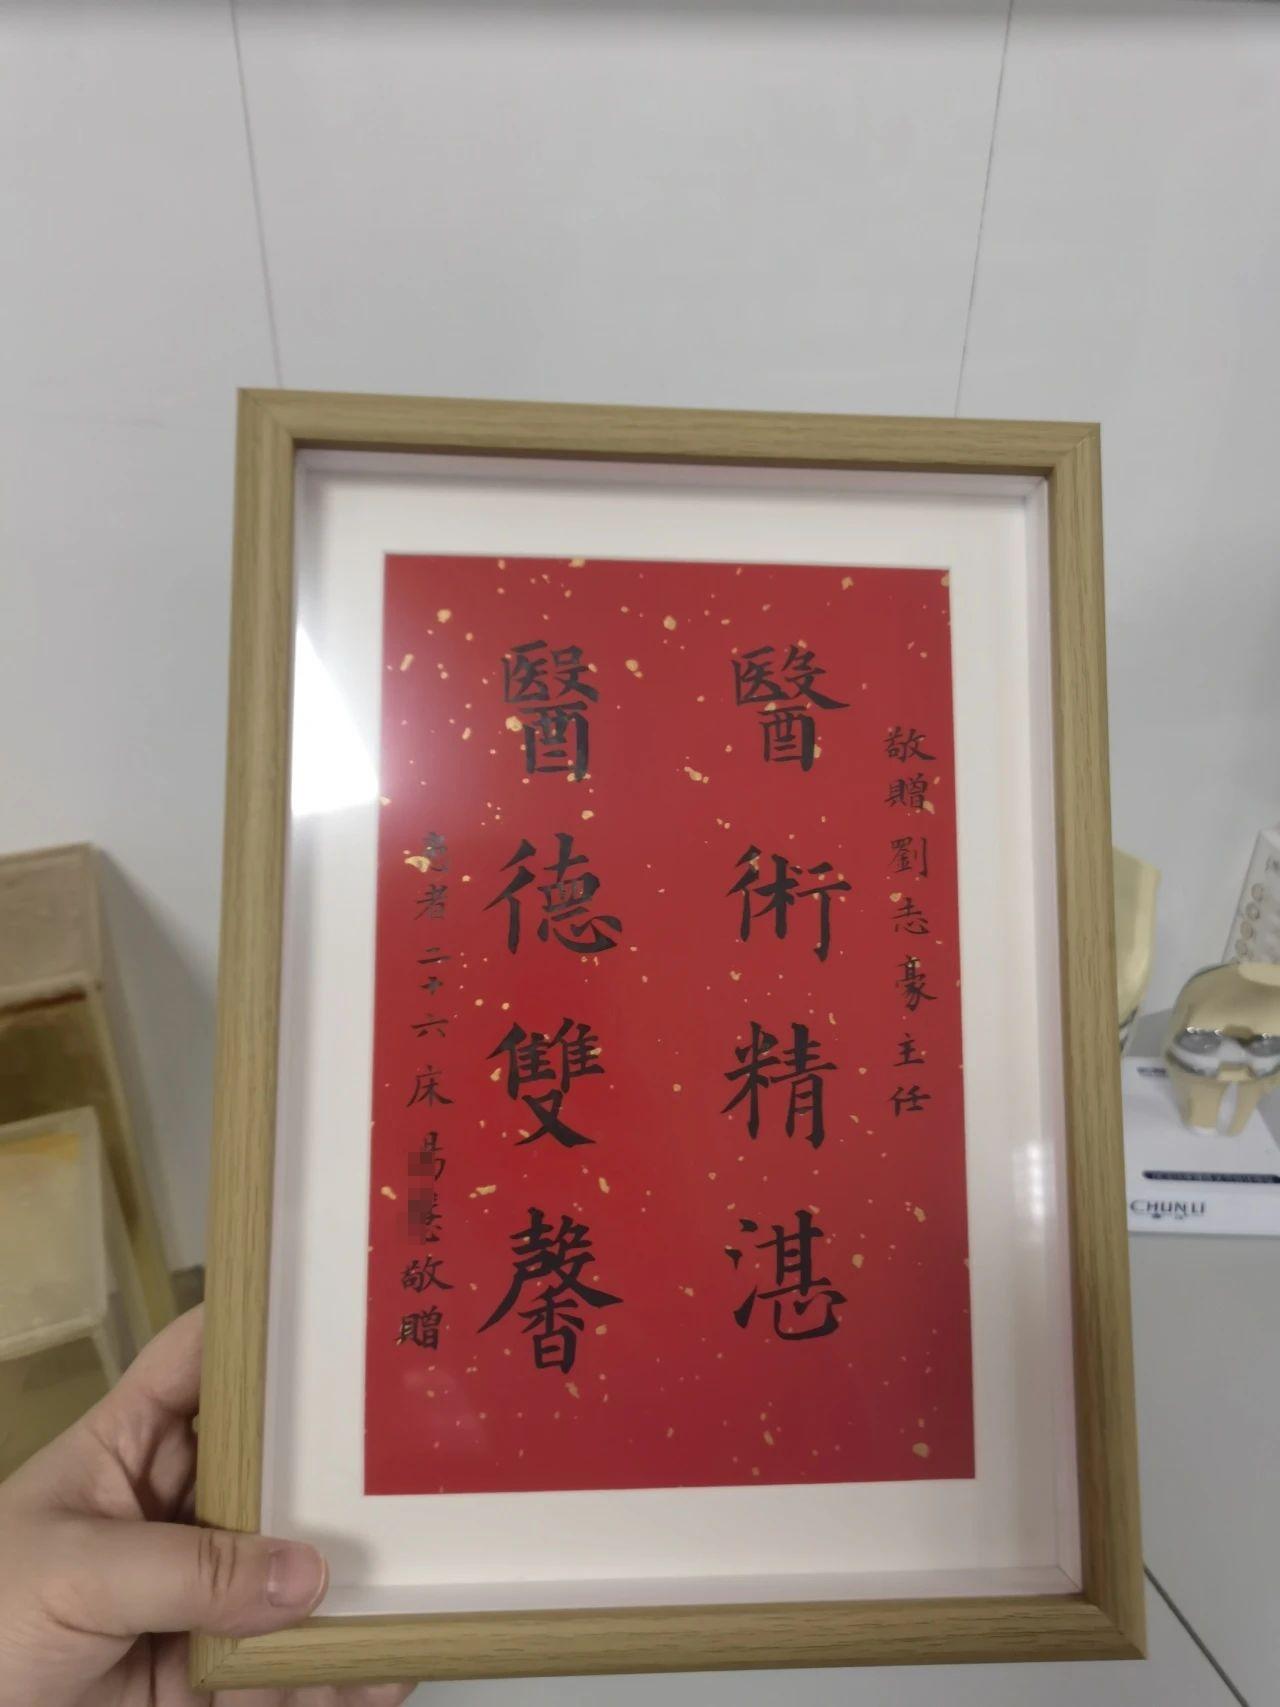 敬贈劉志豪主任
醫術精湛
醫德雙馨
患者二十六床
敬贈
CHUNLI